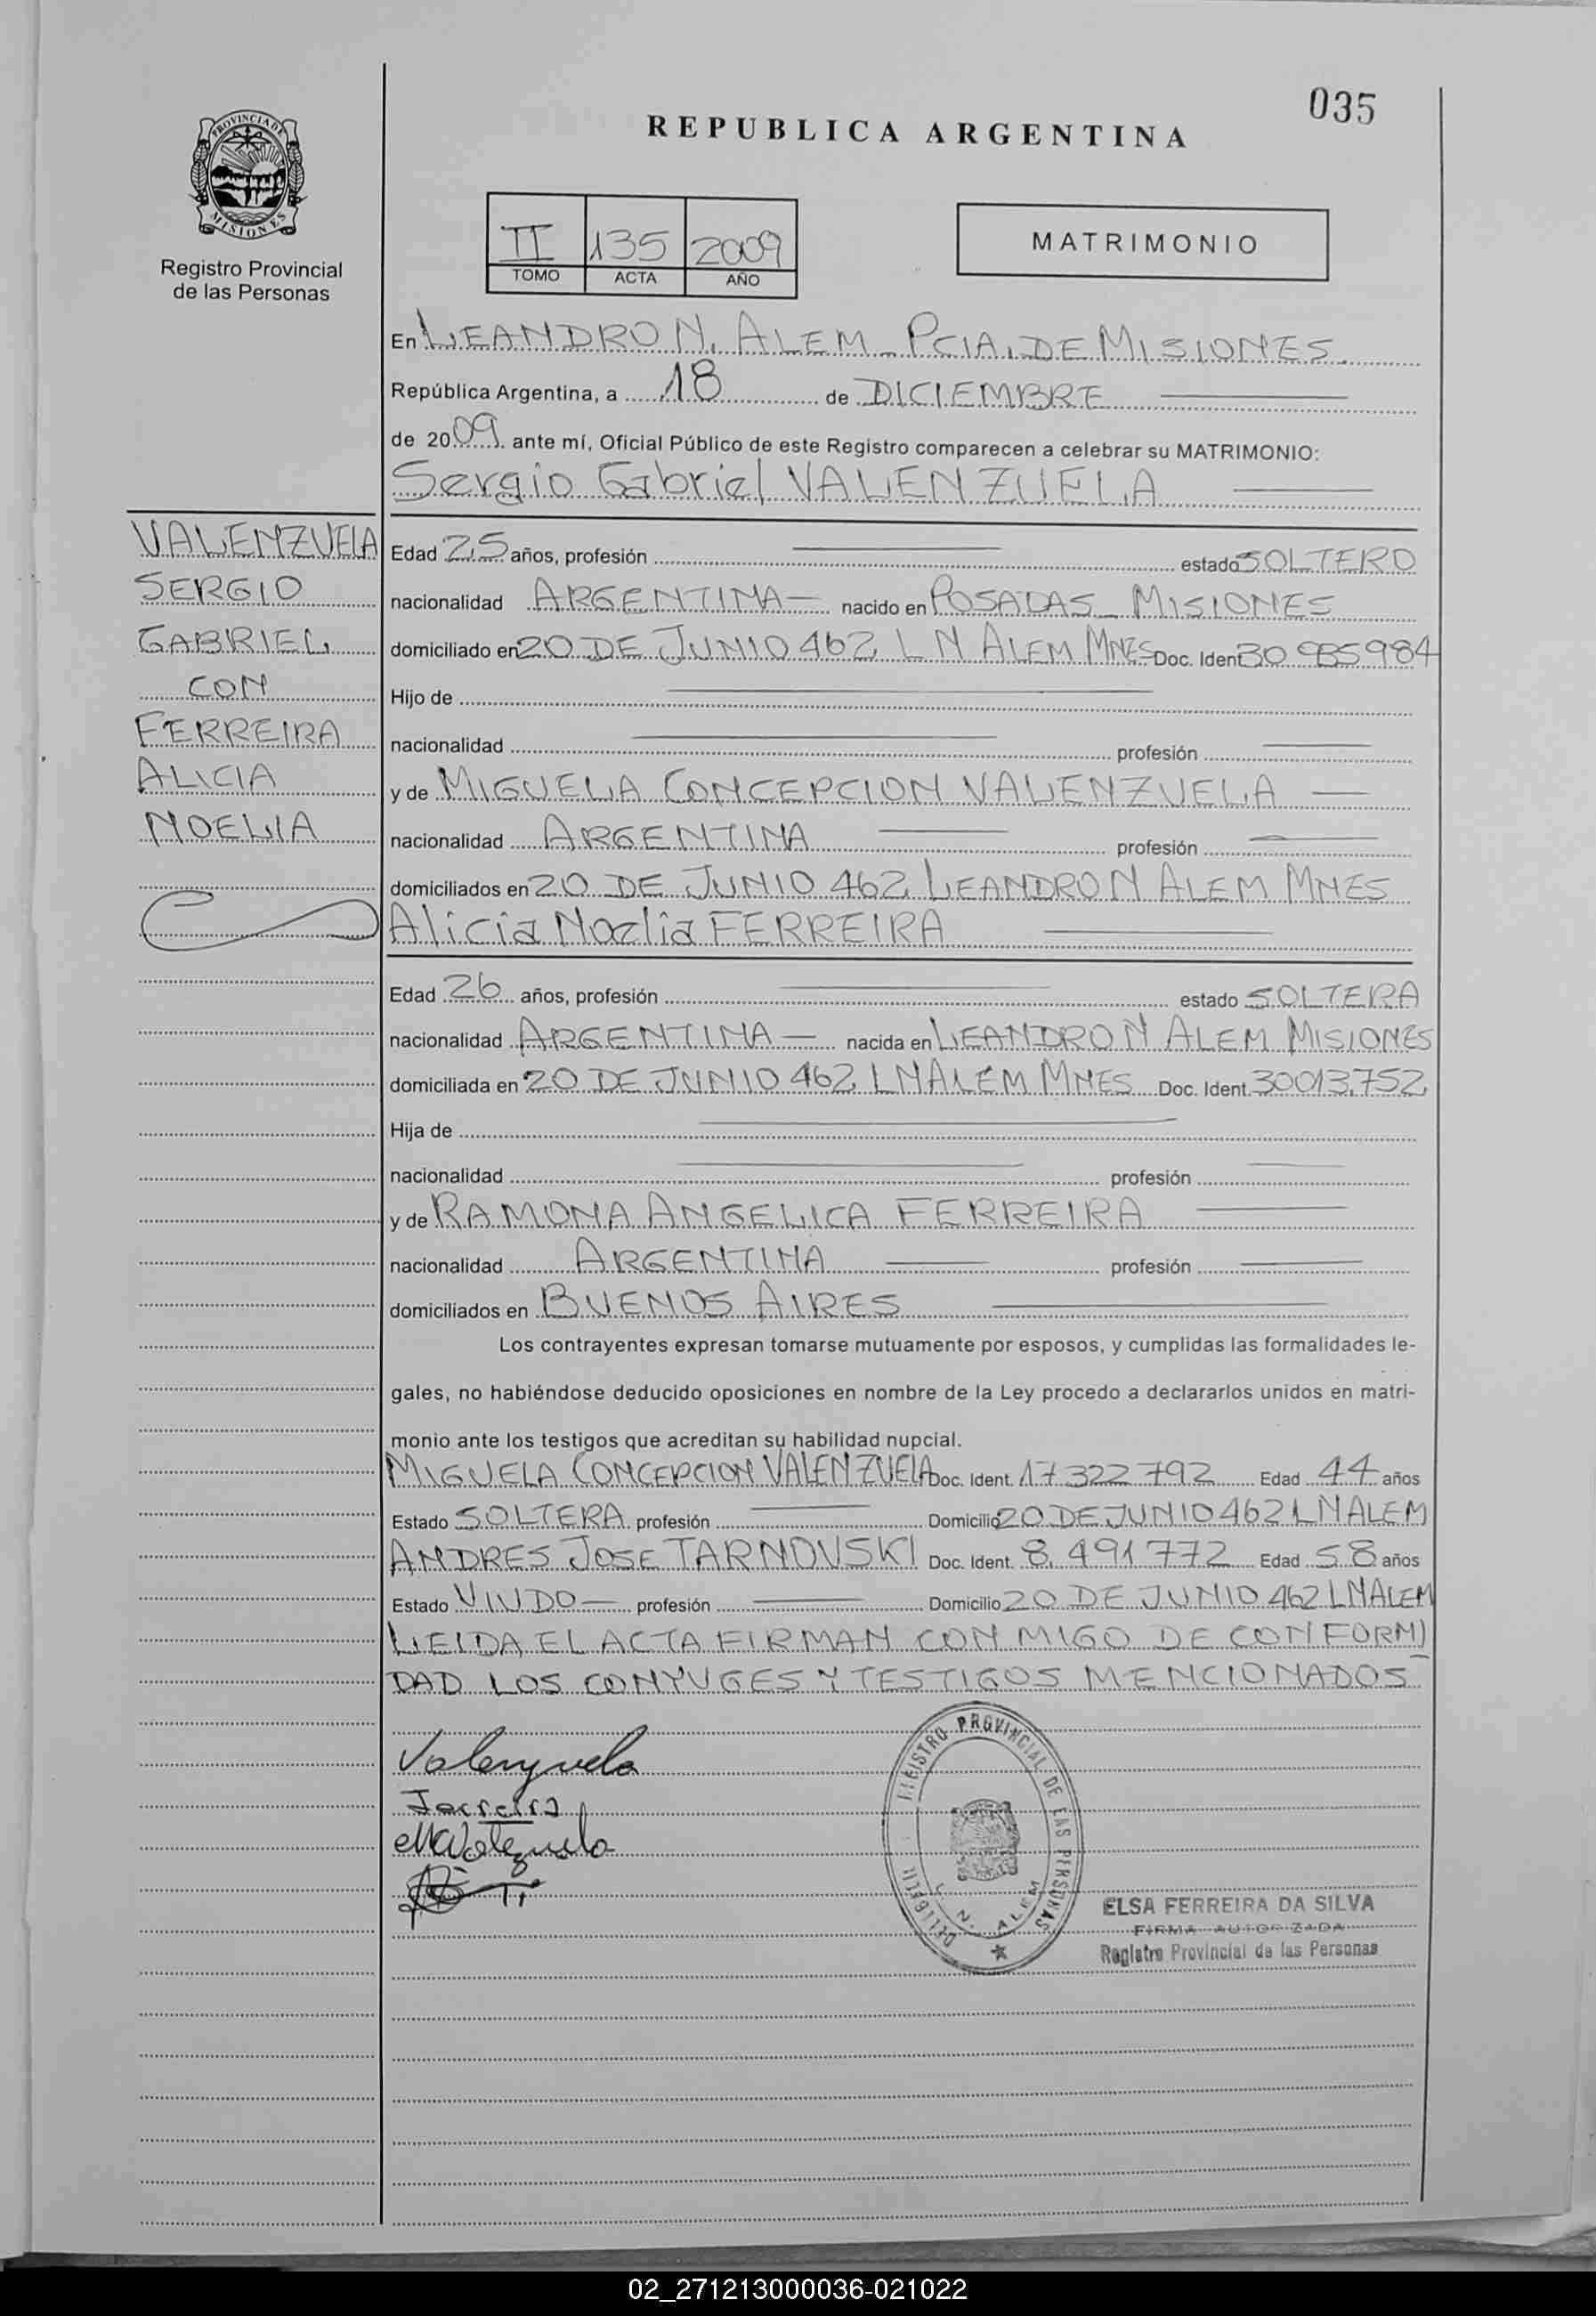 035
REPUBLICA ARGENTINA
PROVINCIA DE
MISIONES
Registro Provincial
de las Personas
II 135 2009
TOMO ACTA AÑO
MATRIMONIO
En LEANDRO N. ALEM - PCIA. DE MISIONES.
República Argentina, a 18 de DICIEMBRE
de 2009 ante mí, Oficial Público de este Registro comparecen a celebrar su MATRIMONIO:
Sergio Gabriel VALENZUELA
VALENZUELA
SERGIO
GABRIEL
CON
FERREIRA
ALICIA
NOELIA
Edad 25 años, profesión estado SOLTERO
nacionalidad ARGENTINA nacido en POSADAS - MISIONES
domiciliado en 20 DE JUNIO 462 L N ALEM MNES Doc. Ident 30 985984
Hijo de
nacionalidad profesión
y de MIGUELA CONCEPCION VALENZUELA
nacionalidad ARGENTINA profesión
domiciliados en 20 DE JUNIO 462 LEANDRO N ALEM MNES
Alicia Noelia FERREIRA
Edad 26 años, profesión estado SOLTERA
nacionalidad ARGENTINA nacida en LEANDRO N ALEM MISIONES
domiciliada en 20 DE JUNIO 462 L N ALEM MNES Doc. Ident. 30013.752
Hija de
nacionalidad profesión
y de RAMONA ANGELICA FERREIRA
nacionalidad ARGENTINA profesión
domiciliados en BUENOS AIRES
Los contrayentes expresan tomarse mutuamente por esposos, y cumplidas las formalidades le-
gales, no habiéndose deducido oposiciones en nombre de la Ley procedo a declararlos unidos en matri-
monio ante los testigos que acreditan su habilidad nupcial.
MIGUELA CONCEPCION VALENZUELA Doc. Ident. 17 322 792 Edad 44 años
Estado SOLTERA profesión Domicilio 20 DE JUNIO 462 L N ALEM
ANDRES JOSE TARNOVSKI Doc. Ident. 8.491 772 Edad 58 años
Estado VIUDO profesión Domicilio 20 DE JUNIO 462 L N ALEM
LEIDA EL ACTA FIRMAN CON MIGO DE CONFORMI
DAD LOS CONYUGES Y TESTIGOS MENCIONADOS
Valenzuela
Ferreira
REGISTRO PROVINCIAL DE LAS PERSONAS
L. N. ALEM
ELSA FERREIRA DA SILVA
FIRMA AUTORIZADA
Registro Provincial de las Personas
02_271213000036-021022